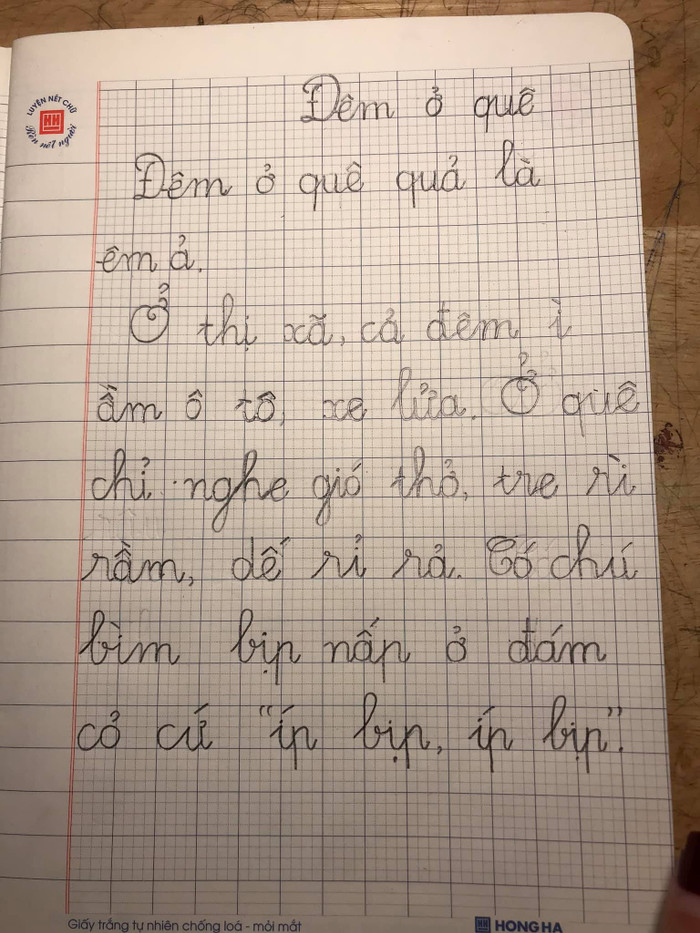 LUYỆN NÉT CHỮ
Rèn nết người
HH
Đêm ở quê
Đêm ở quê quả là
êm ả.
Ở thị xã, cả đêm ì
ầm ô tô, xe lửa. Ở quê
chỉ nghe gió thở, tre rì
rầm, dế rỉ rả. Có chú
bìm bịp nấp ở đám
cỏ cứ "íp bịp, íp bịp".
Giấy trắng tự nhiên chống loá - mỏi mắt
HH HONG HA